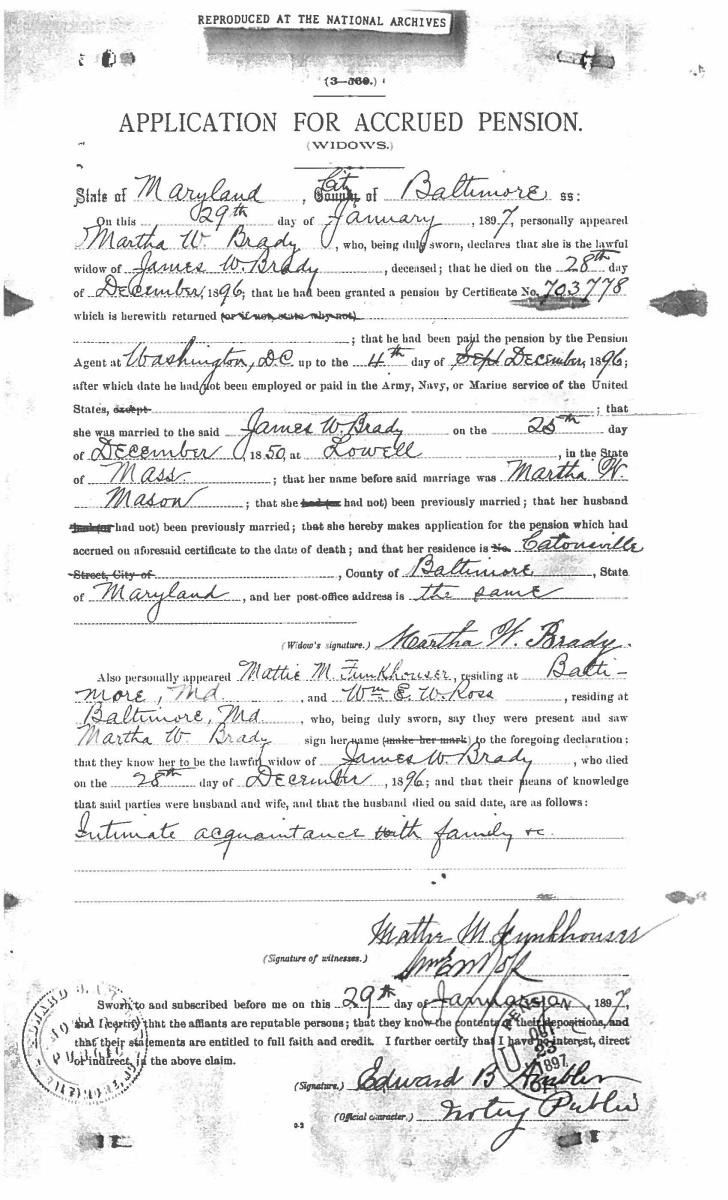 REPRODUCED AT THE NATIONAL ARCHIVES
(3—560.)
APPLICATION FOR ACCRUED PENSION.
(WIDOWS.)
State of Maryland, City County of Baltimore ss:
On this 29th day of January, 1897, personally appeared
Martha W. Brady, who, being duly sworn, declares that she is the lawful
widow of James W. Brady, deceased; that he died on the 28th day
of December, 1896; that he had been granted a pension by Certificate No. 703778
which is herewith returned (or if not, state why not)
; that he had been paid the pension by the Pension
Agent at Washington, D.C. up to the 4th day of Sept December, 1896;
after which date he had not been employed or paid in the Army, Navy, or Marine service of the United
States, except ; that
she was married to the said James W. Brady on the 25th day
of December, 1850, at Lowell, in the State
of Mass ; that her name before said marriage was Martha W.
Mason ; that she had (or had not) been previously married; that her husband
had (or had not) been previously married; that she hereby makes application for the pension which had
accrued on aforesaid certificate to the date of death; and that her residence is No. Catonsville
Street, City of , County of Baltimore, State
of Maryland, and her post-office address is the same
(Widow's signature.) Martha W. Brady.
Also personally appeared Mattie M. Funkhouser, residing at Balti-
more, Md, and Wm E. W. Ross, residing at
Baltimore, Md, who, being duly sworn, say they were present and saw
Martha W. Brady sign her name (make her mark) to the foregoing declaration;
that they know her to be the lawful widow of James W. Brady, who died
on the 28th day of December, 1896; and that their means of knowledge
that said parties were husband and wife, and that the husband died on said date, are as follows:
Intimate acquaintance with family &c.
Mattie M Funkhouser
(Signature of witnesses.)
Sworn to and subscribed before me on this 29th day of January, 1897.
and I certify that the affiants are reputable persons; that they know the contents of their depositions, and
that their statements are entitled to full faith and credit. I further certify that I have no interest, direct
or indirect, in the above claim.
PENSION
U
23
1897
PUBLIC
(Signature.) Edward B
(Official character.) Notary Public